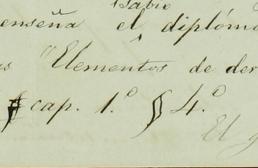 sabio
enseña el diplóm
"Elementos de der
cap. 1.° § 4.°
El g